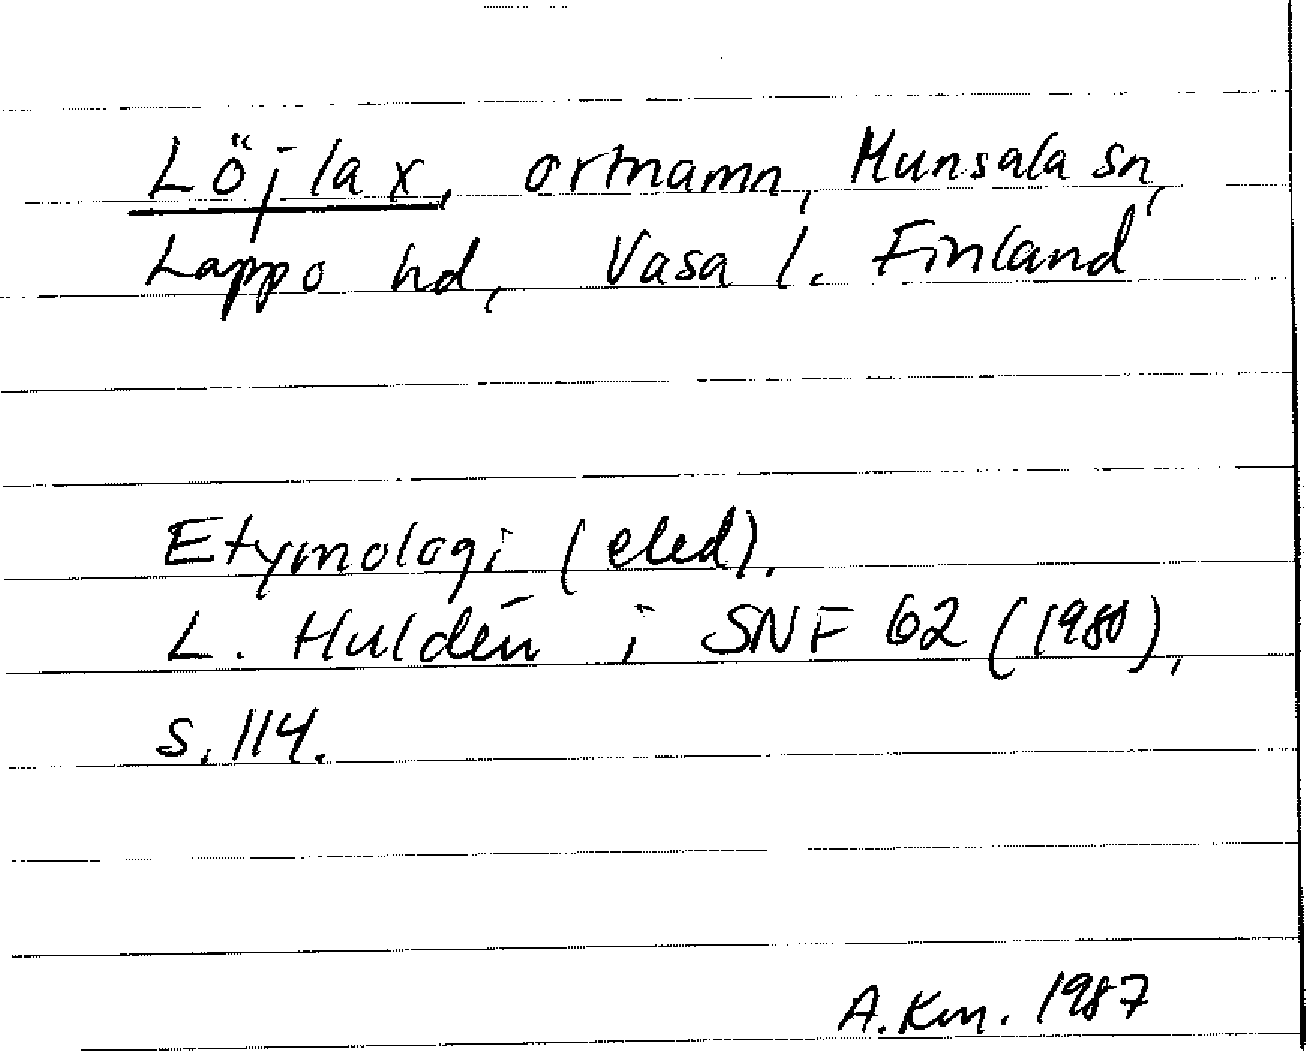 Löjlax, ortnamn, Munsala sn,
Lappo hd, Vasa l. Finland
Etymologi (eled).
L. Huldén i SNF 62 (1980),
s. 114.
A. Km. 1987